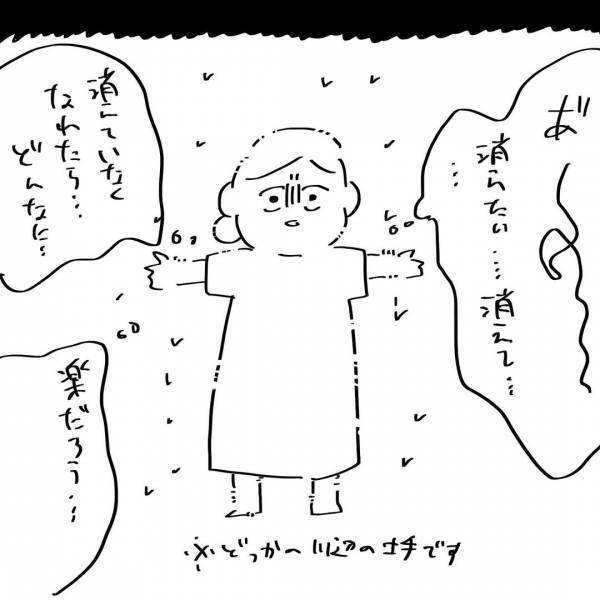 あ゛
消えたい……消えて…
…
消えていなく
なれたら…
どんなに…
楽だろう…
※どっかの川辺の土手です